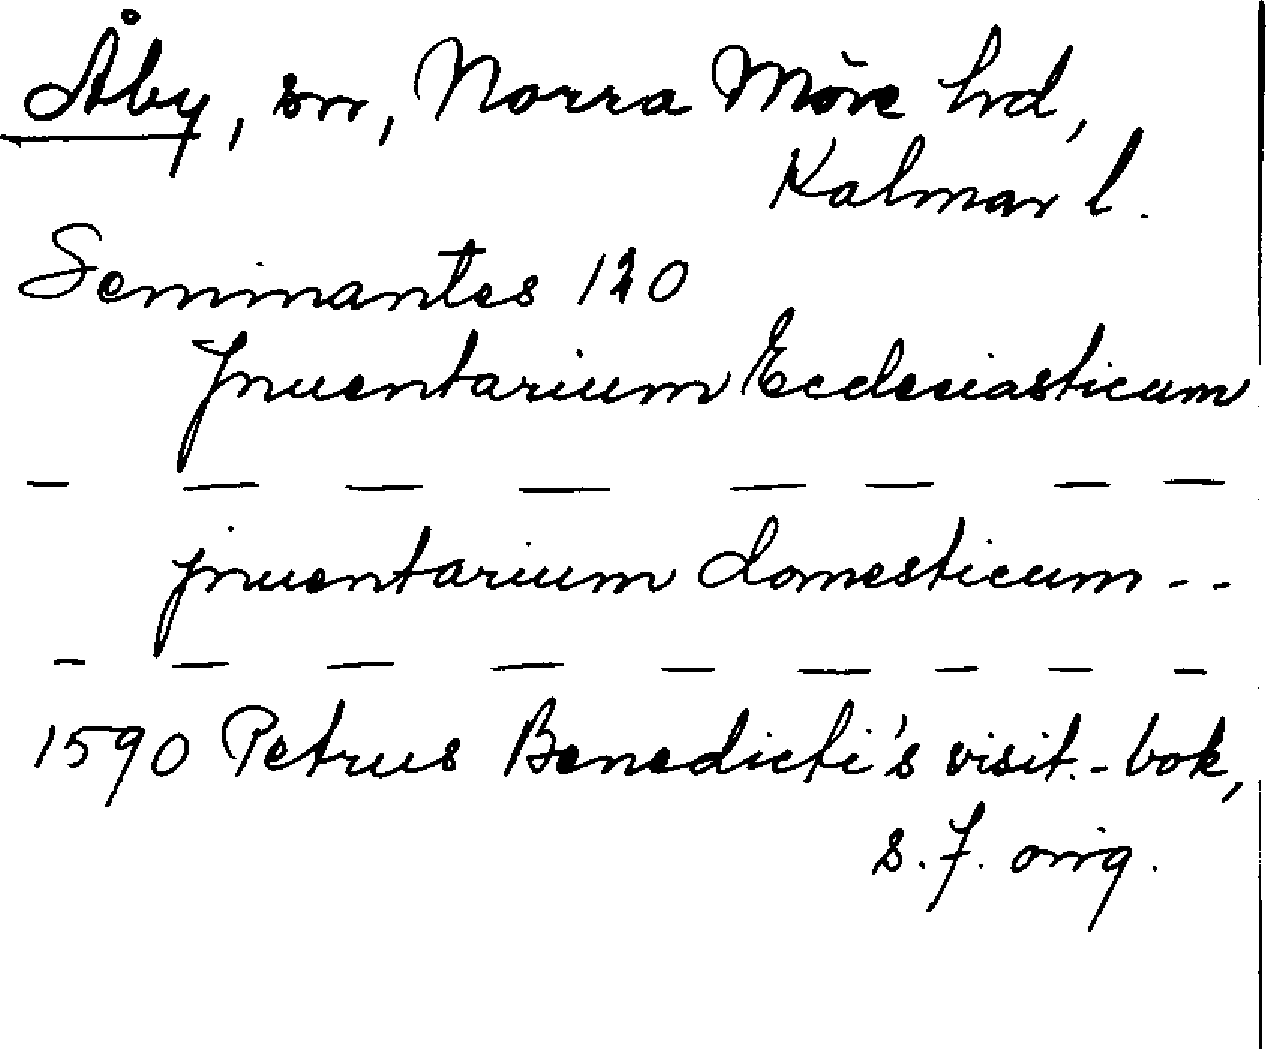 Åby, sn, Norra Möre hrd,
Kalmar l.
Seminantes 120
Inuentarium Ecclesiasticum
— — — — — — — —
inuentarium domesticum - -
- — — — — — — — -
1590 Petrus Benedicti's visit.-bok,
s. 7. orig.